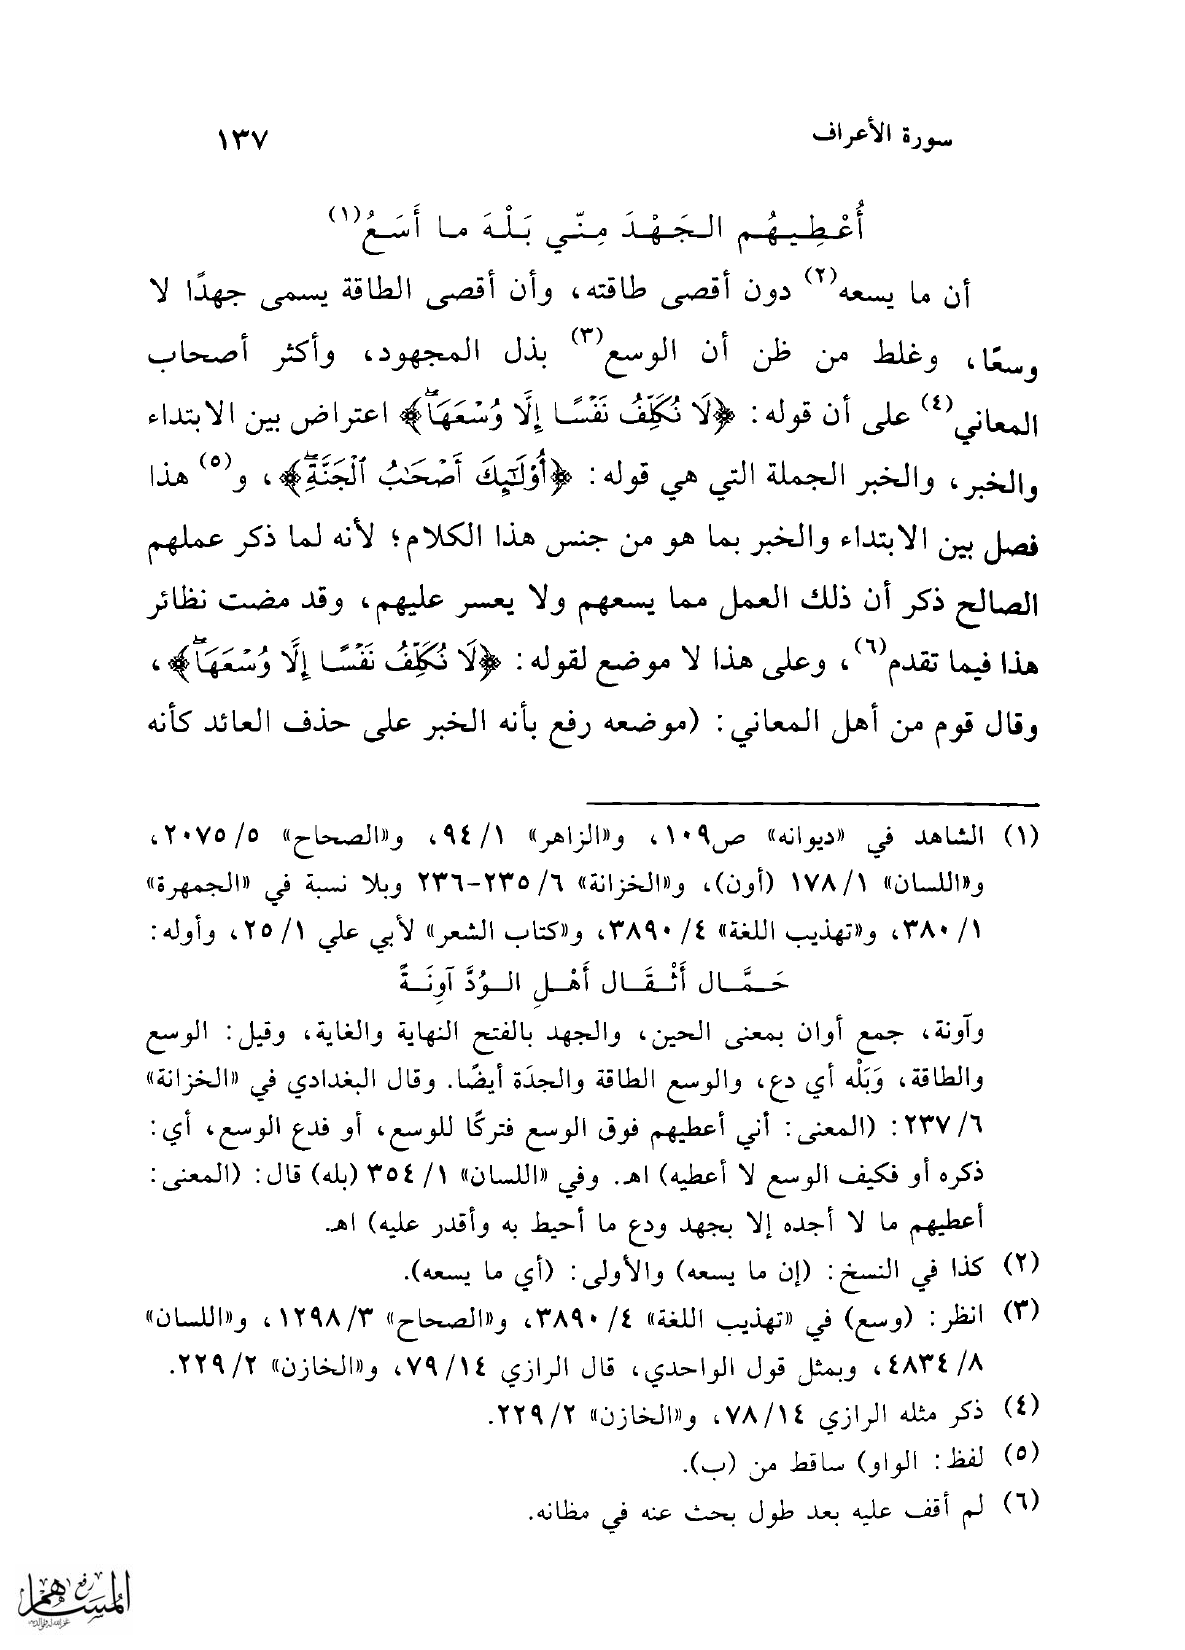 سورة الأعراف
١٣٧
أُعْطِيهُم الجَهْدَ مِنّي بَلْهَ ما أَسَعُ(١)
أن ما يسعه(٢) دون أقصى طاقته، وأن أقصى الطاقة يسمى جهدًا لا
وسعًا، وغلط من ظن أن الوسع(٣) بذل المجهود، وأكثر أصحاب
المعاني(٤) على أن قوله: ﴿لَا نُكَلِّفُ نَفْسًا إِلَّا وُسْعَهَاۖ﴾ اعتراض بين الابتداء
والخبر، والخبر الجملة التي هي قوله: ﴿أُوْلَٰٓئِكَ أَصْحَٰبُ ٱلْجَنَّةِۖ﴾، و(٥) هذا
فصل بين الابتداء والخبر بما هو من جنس هذا الكلام؛ لأنه لما ذكر عملهم
الصالح ذكر أن ذلك العمل مما يسعهم ولا يعسر عليهم، وقد مضت نظائر
هذا فيما تقدم(٦)، وعلى هذا لا موضع لقوله: ﴿لَا نُكَلِّفُ نَفْسًا إِلَّا وُسْعَهَاۖ﴾،
وقال قوم من أهل المعاني: (موضعه رفع بأنه الخبر على حذف العائد كأنه
(١) الشاهد في «ديوانه» ص١٠٩، و«الزاهر» ١/ ٩٤، و«الصحاح» ٥/ ٢٠٧٥،
و«اللسان» ١/ ١٧٨ (أون)، و«الخزانة» ٦/ ٢٣٥-٢٣٦ وبلا نسبة في «الجمهرة»
١/ ٣٨٠، و«تهذيب اللغة» ٤/ ٣٨٩٠، و«كتاب الشعر» لأبي علي ١/ ٢٥، وأوله:
حَمَّال أَثْقَال أَهْلِ الوُدَّ آوِنَةً
وآونة، جمع أوان بمعنى الحين، والجهد بالفتح النهاية والغاية، وقيل: الوسع
والطاقة، وَبَلْه أي دع، والوسع الطاقة والجدَة أيضًا. وقال البغدادي في «الخزانة»
٦/ ٢٣٧: (المعنى: أني أعطيهم فوق الوسع فتركًا للوسع، أو فدع الوسع، أي:
ذكره أو فكيف الوسع لا أعطيه) اهـ. وفي «اللسان» ١/ ٣٥٤ (بله) قال: (المعنى:
أعطيهم ما لا أجده إلا بجهد ودع ما أحيط به وأقدر عليه) اهـ.
(٢) كذا في النسخ: (إن ما يسعه) والأولى: (أي ما يسعه).
(٣) انظر: (وسع) في «تهذيب اللغة» ٤/ ٣٨٩٠، و«الصحاح» ٣/ ١٢٩٨، و«اللسان»
٨/ ٤٨٣٤، وبمثل قول الواحدي، قال الرازي ١٤/ ٧٩، و«الخازن» ٢/ ٢٢٩.
(٤) ذكر مثله الرازي ١٤/ ٧٨، و«الخازن» ٢/ ٢٢٩.
(٥) لفظ: الواو) ساقط من (ب).
(٦) لم أقف عليه بعد طول بحث عنه في مظانه.